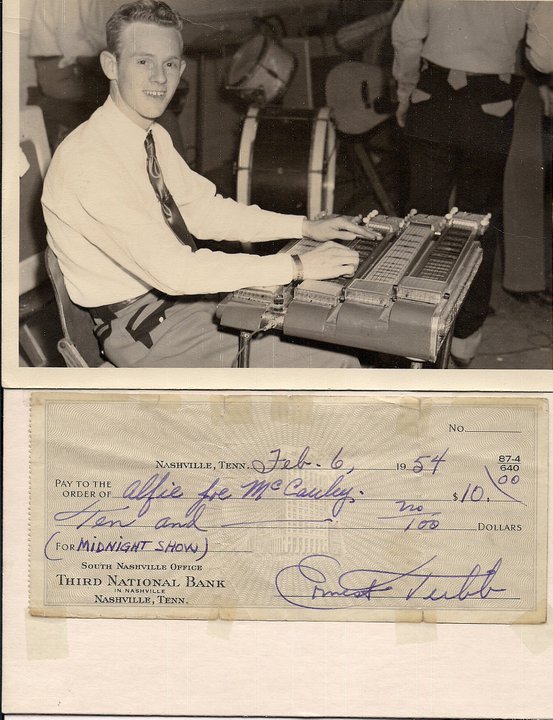 No.
NASHVILLE, TENN. Feb. 6, 1954
87-4
640
PAY TO THE
ORDER OF Alfie Joe McCauley. $10.00
Ten and no/100 DOLLARS
(FOR MIDNIGHT SHOW)
SOUTH NASHVILLE OFFICE
THIRD NATIONAL BANK
IN NASHVILLE
NASHVILLE, TENN.
Ernest Tubb